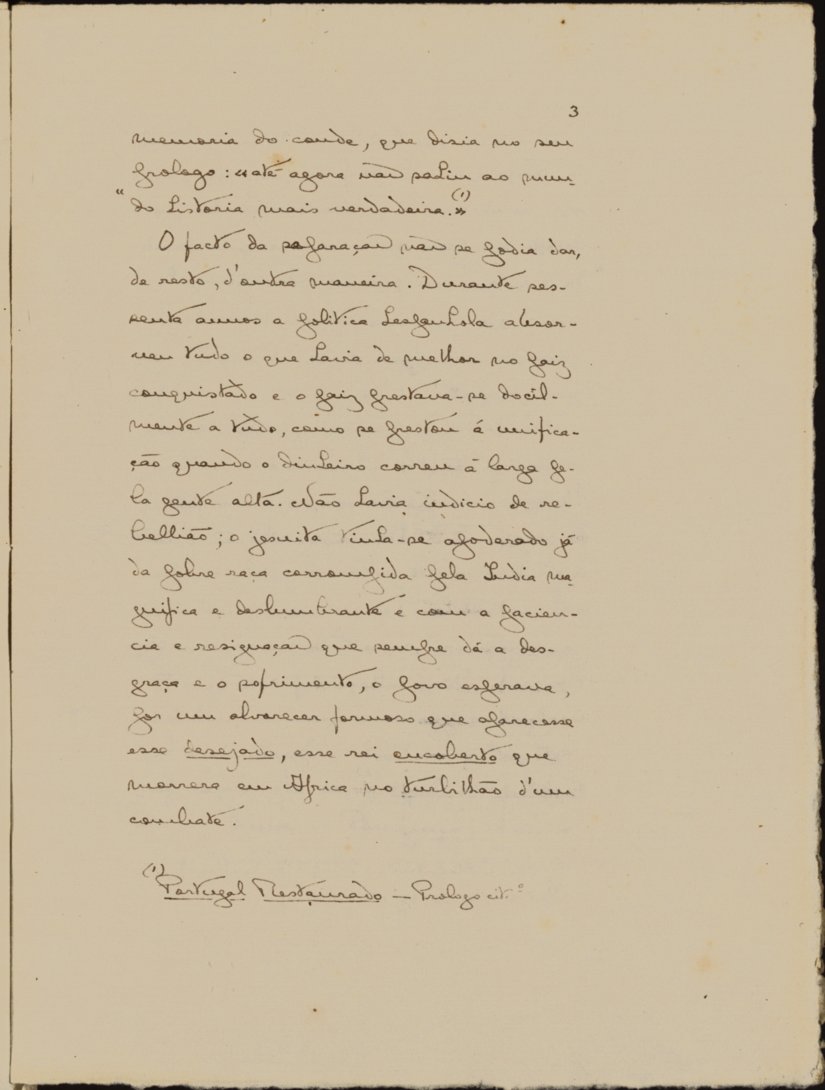 3
memoria do conde, que disia no seu
prologo: «até agora não sahiu ao mun-
"do historia mais verdadeira.»(1)
O facto da separação não se podia dar,
de resto, d'outra maneira. Durante ses-
senta annos a politica hespanhola absor-
veu tudo o que havia de melhor no paiz
conquistado e o paiz prestava-se docil-
mente a tudo, como se prestou á unifica-
ção quando o dinheiro correu á larga pe-
la gente alta. Não havia indicio de re-
bellião; o jesuita tinha-se apoderado já
da pobre raça corrompida pela India ma-
gnifica e deslumbrante e com a pacien-
cia e resignação que sempre dá a des-
graça e o sofrimento, o povo esperava,
por um alvorecer formoso que aparecesse
esse desejado, esse rei encoberto que
morrera em Africa no turbilhão d'um
combate.
(1) Portugal Restaurado — Prologo cit.º